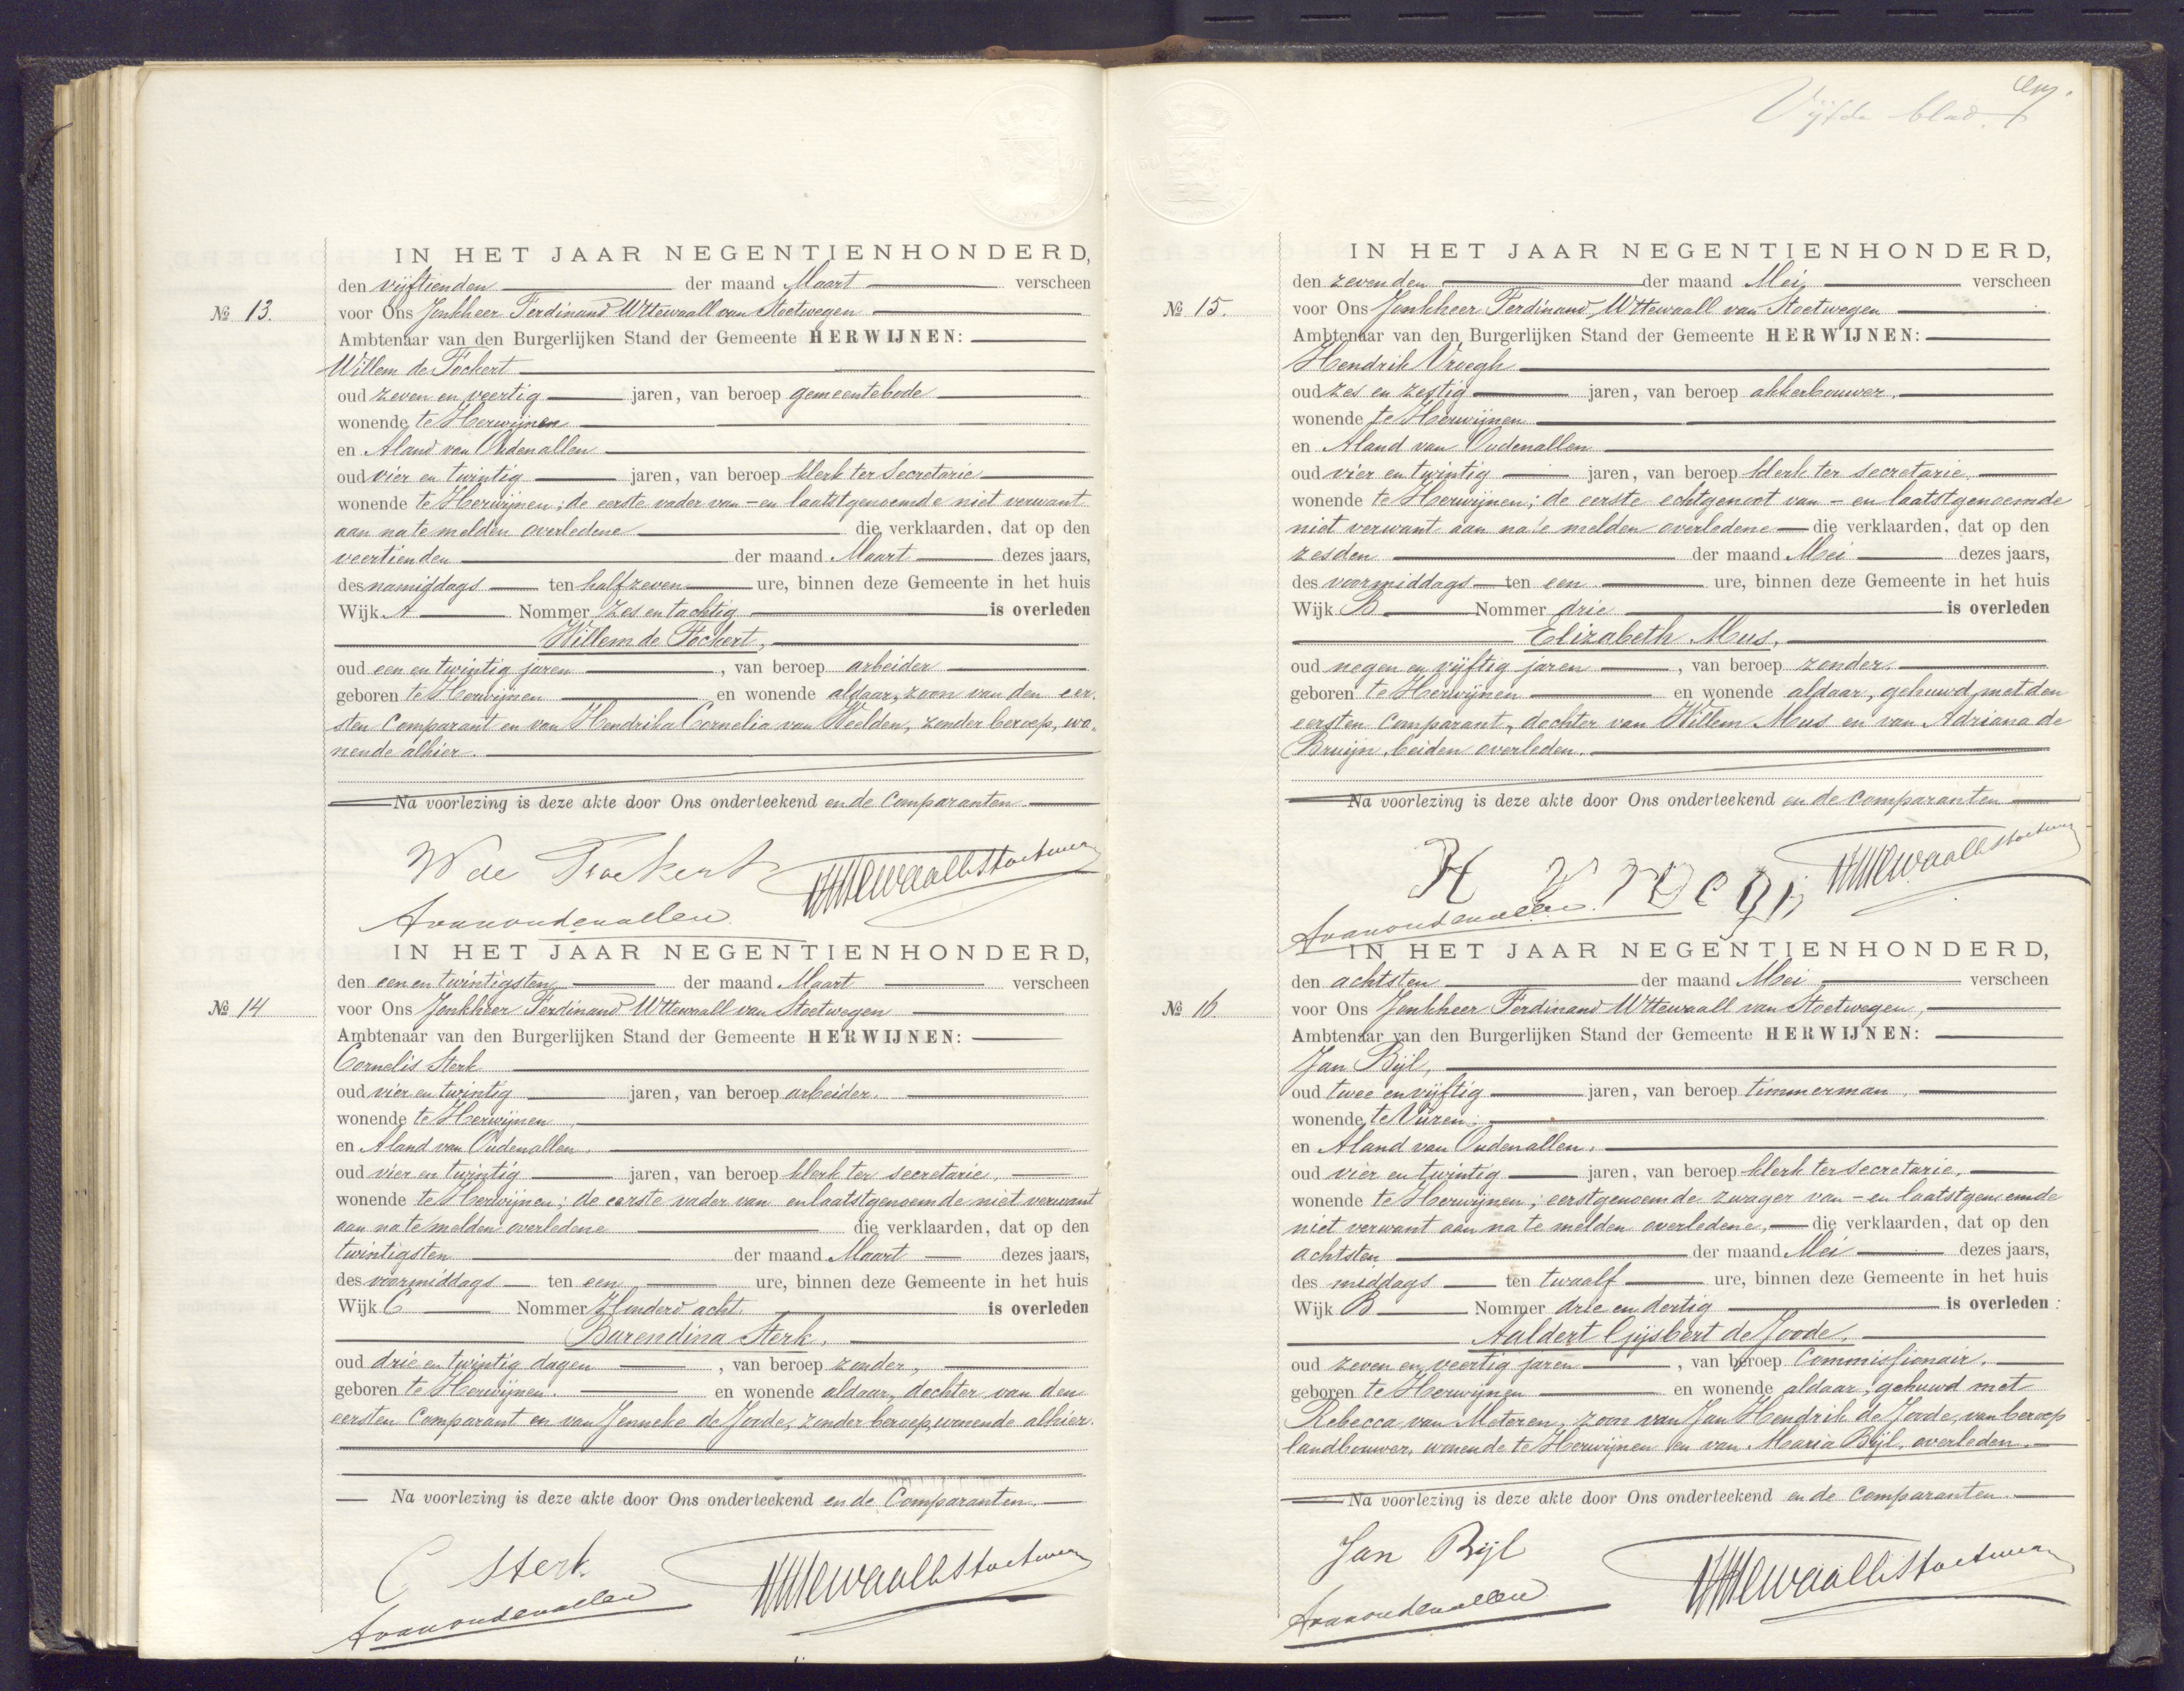 IN HET JAAR NEGENTIENHONDERD,
den vijftienden der maand Maart verscheen
No 13. voor Ons Jonkheer Ferdinand Wttewaall van Stoetwegen
Ambtenaar van den Burgerlijken Stand der Gemeente HERWIJNEN:
Willem de Fockert
oud zeven en veertig jaren, van beroep gemeentebode
wonende te Herwijnen
en Aland van Oudenallen
oud vier en twintig jaren, van beroep klerk ter secretarie
wonende te Herwijnen; de eerste vader van - en laatstgenoemde niet verwant
aan na te melden overledene die verklaarden, dat op den
veertienden der maand Maart dezes jaars,
des namiddags ten half zeven ure, binnen deze Gemeente in het huis
Wijk A Nommer Zes en tachtig is overleden
Willem de Fockert,
oud een en twintig jaren, van beroep arbeider
geboren te Herwijnen en wonende aldaar, zoon van den eer-
sten Comparant en van Hendrika Cornelia van Weelden, zonder beroep, wo-
nende alhier.
Na voorlezing is deze akte door Ons onderteekend en de Comparanten
W de Fockert
FWttewaallvStoetwegen
Avanoudenallen
IN HET JAAR NEGENTIENHONDERD,
den een en twintigsten der maand Maart verscheen
No 14 voor Ons Jonkheer Ferdinand Wttewaall van Stoetwegen
Ambtenaar van den Burgerlijken Stand der Gemeente HERWIJNEN:
Cornelis Sterk
oud vier en twintig jaren, van beroep arbeider.
wonende te Herwijnen,
en Aland van Oudenallen.
oud vier en twintig jaren, van beroep klerk ter secretarie,
wonende te Herwijnen; de eerste vader van en laatstgenoemde niet verwant
aan na te melden overledene die verklaarden, dat op den
twintigsten der maand Maart dezes jaars,
des voormiddags ten een ure, binnen deze Gemeente in het huis
Wijk C Nommer Honderd acht. is overleden
Barendina Sterk,
oud drie en twintig dagen, van beroep zonder,
geboren te Herwijnen. en wonende aldaar, dochter van den
eersten Comparant en van Jenneke de Joode, zonder beroep, wonende alhier.
Na voorlezing is deze akte door Ons onderteekend en de Comparanten.
C Sterk
FWttewaallvStoetwegen
Avanoudenallen
Vijfde blad.
IN HET JAAR NEGENTIENHONDERD,
den zevenden der maand Mei, verscheen
No 15. voor Ons Jonkheer Ferdinand Wttewaall van Stoetwegen
Ambtenaar van den Burgerlijken Stand der Gemeente HERWIJNEN:
Hendrik Vroegh
oud zes en zestig jaren, van beroep akkerbouwer,
wonende te Herwijnen
en Aland van Oudenallen
oud vier en twintig jaren, van beroep klerk ter secretarie,
wonende te Herwijnen; de eerste echtgenoot van - en laatstgenoemde
niet verwant aan na te melden overledene die verklaarden, dat op den
zesden der maand Mei dezes jaars,
des voormiddags ten een ure, binnen deze Gemeente in het huis
Wijk B Nommer drie is overleden
Elizabeth Mus,
oud negen en vijftig jaren, van beroep zonder.
geboren te Herwijnen en wonende aldaar, gehuwd met den
eersten Comparant, dochter van Willem Mus en van Adriana de
Bruijn, beiden overleden.
Na voorlezing is deze akte door Ons onderteekend en de comparanten
H Vroegh
FWttewaallvStoetwegen
Avanoudenallen.
IN HET JAAR NEGENTIENHONDERD,
den achtsten der maand Mei verscheen
No 16 voor Ons Jonkheer Ferdinand Wttewaall van Stoetwegen,
Ambtenaar van den Burgerlijken Stand der Gemeente HERWIJNEN:
Jan Bijl,
oud twee en vijftig jaren, van beroep timmerman,
wonende te Vuren.
en Aland van Oudenallen.
oud vier en twintig jaren, van beroep klerk ter secretarie,
wonende te Herwijnen; eerstgenoemde zwager van - en laatstgenoemde
niet verwant aan na te melden overledene, die verklaarden, dat op den
achtsten der maand Mei dezes jaars,
des middags ten twaalf ure, binnen deze Gemeente in het huis
Wijk B Nommer drie en dertig is overleden:
Aaldert Gijsbert de Joode.
oud zeven en veertig jaren, van beroep Commissionair.
geboren te Herwijnen en wonende aldaar, gehuwd met
Rebecca van Meteren, zoon van Jan Hendrik de Joode, van beroep
landbouwer, wonende te Herwijnen en van Maria Bijl, overleden.
Na voorlezing is deze akte door Ons onderteekend en de comparanten.
Jan Bijl
FWttewaallvStoetwegen
Avanoudenallen